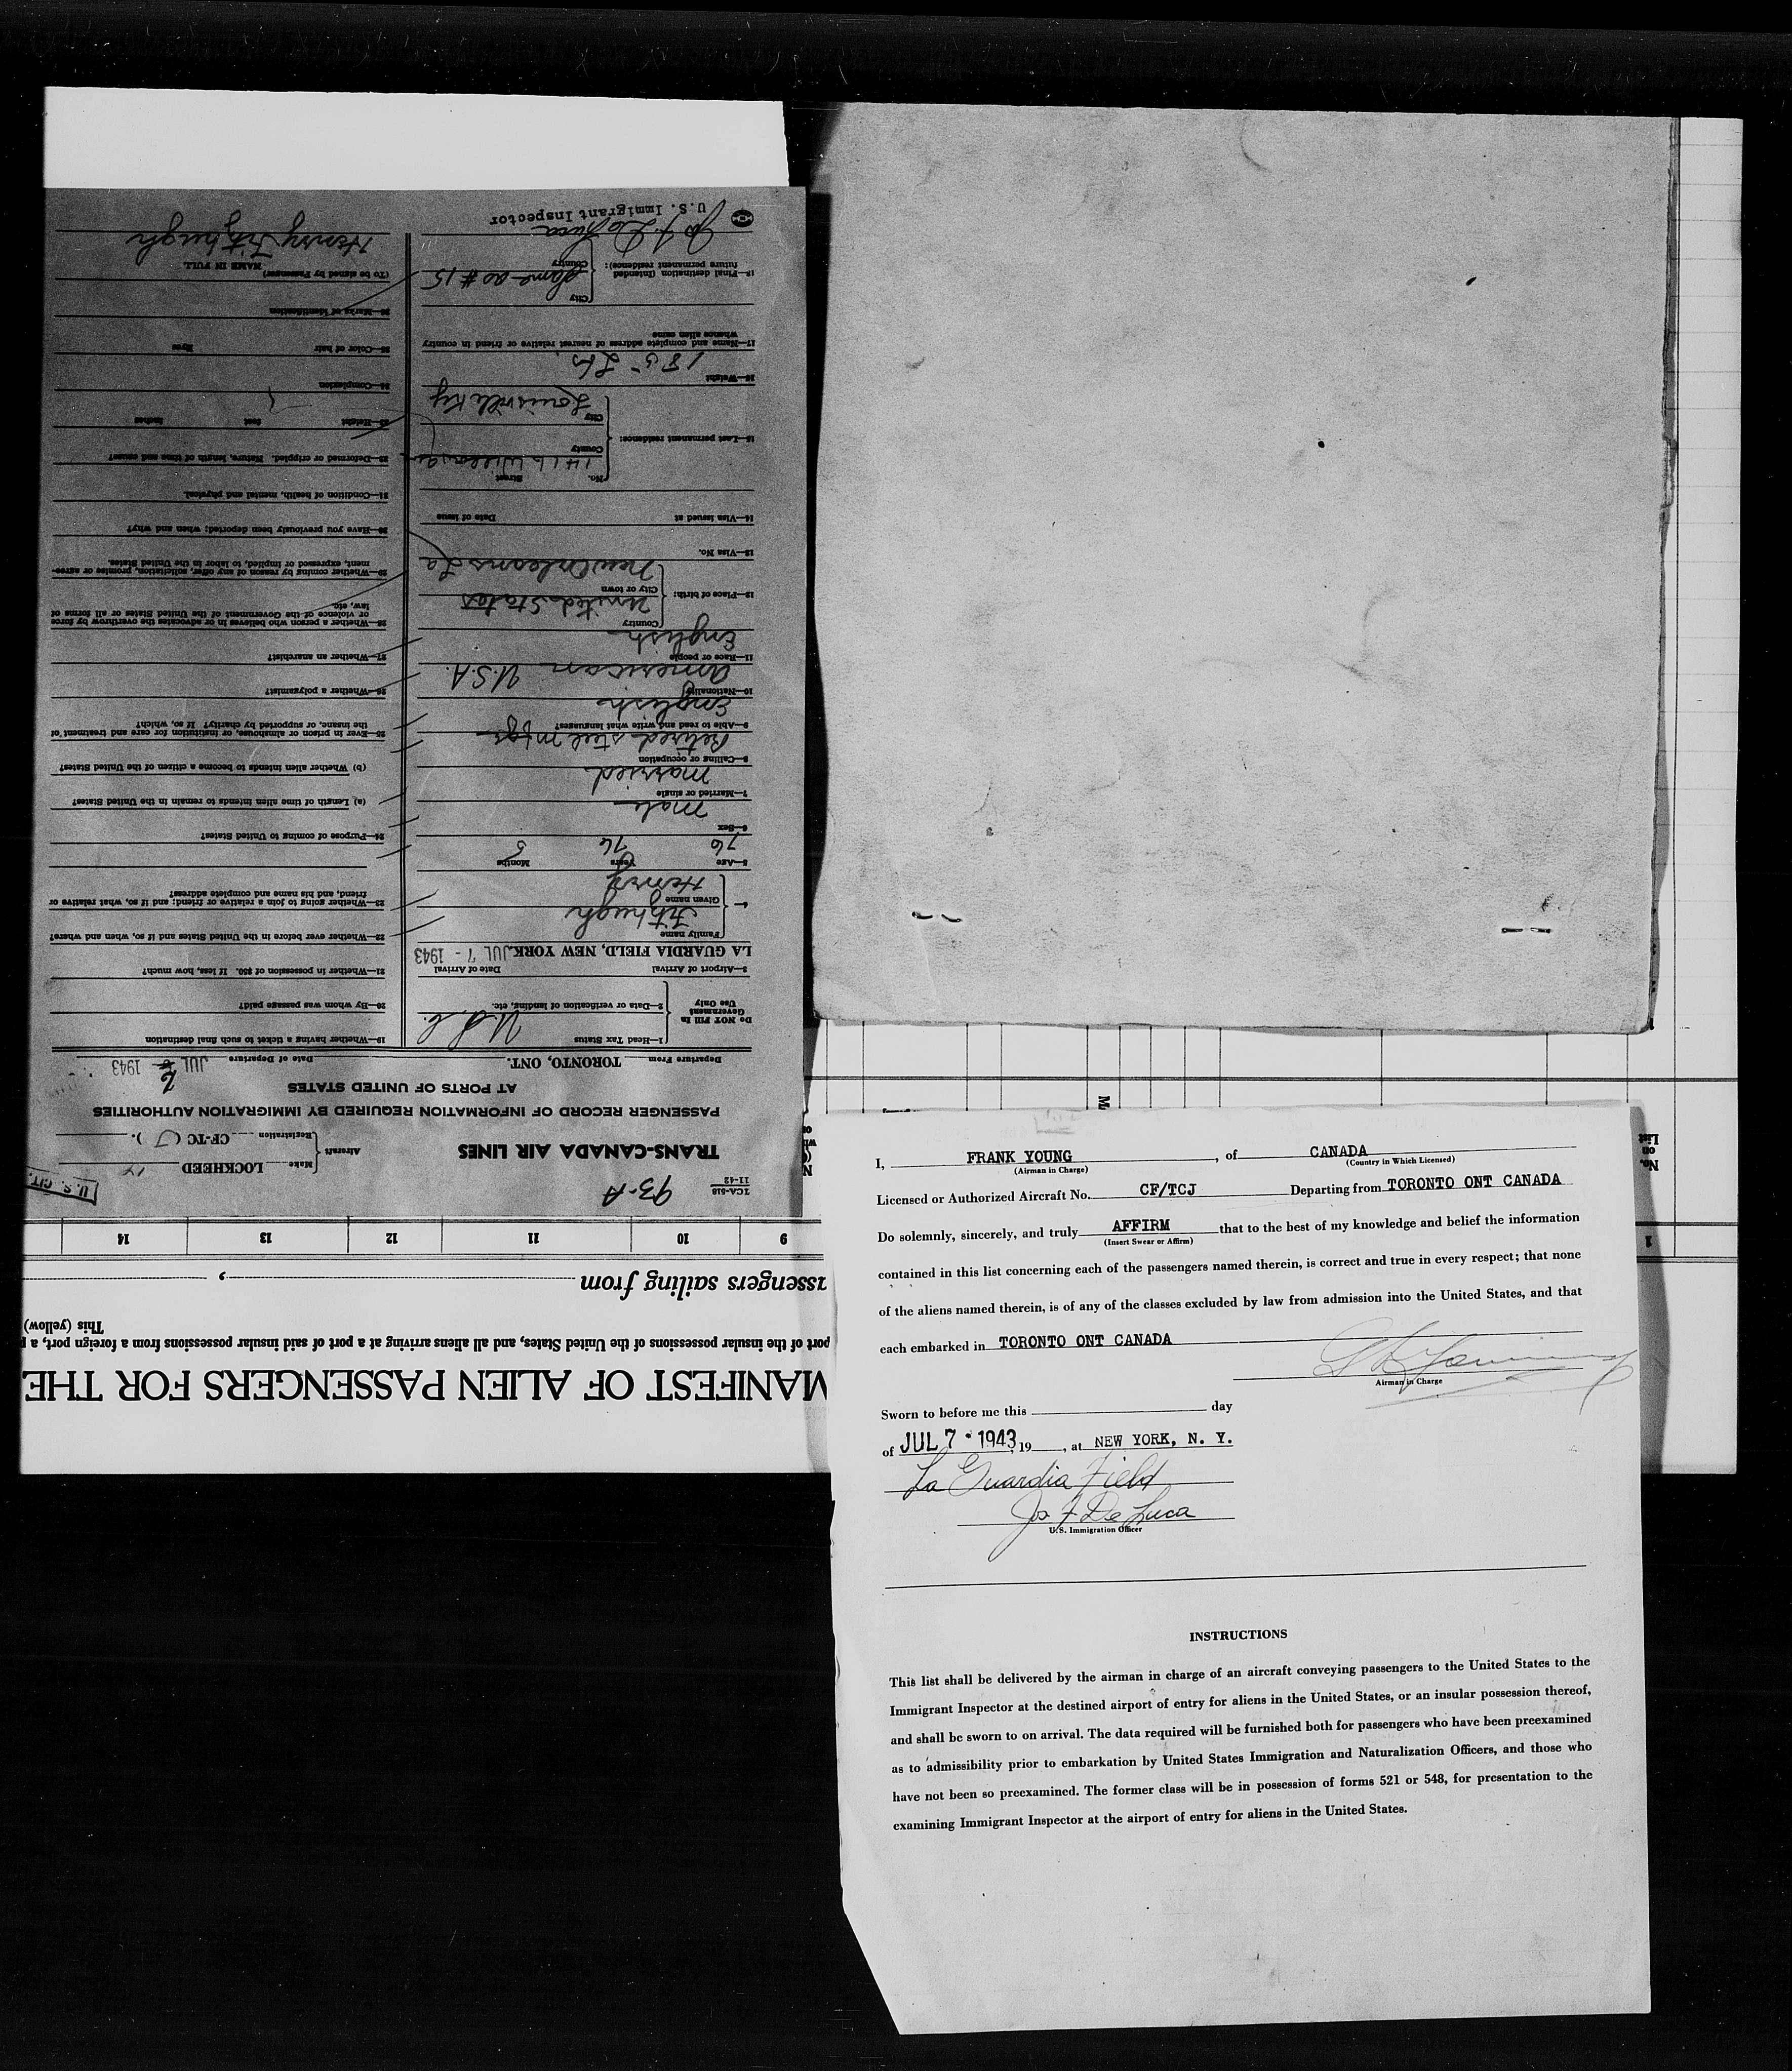 TCA-518
11-42
93-A
TRANS-CANADA AIR LINES
Aircraft
Make LOCKHEED 14
Registration CF-TC ( J ).
U. S. CIT.
PASSENGER RECORD OF INFORMATION REQUIRED BY IMMIGRATION AUTHORITIES
AT PORTS OF UNITED STATES
Departure From TORONTO, ONT. Date of Departure JUL 1943
Do NOT Fill In
Government
Use Only
1—Head Tax Status
2—Data or verification of landing, etc.
3—Airport of Arrival Date of Arrival
LA GUARDIA FIELD, NEW YORK. JUL 7 - 1943
4—
Family name Fitzhugh
Given name Henry
5—Age Years Months
76 76 5
6—Sex
Male
7—Married or single
Married
8—Calling or occupation
Retired steel mfgr
9—Able to read and write what languages?
English
10—Nationality
American U.S.A.
11—Race or people
English
12—Place of birth:
Country United States
City or town New Orleans La
13—Visa No.
14—Visa issued at Date of issue
15—Last permanent residence:
No. Street
1416
County
City Louisville Ky
16—Weight
185 Lbs
17—Name and complete address of nearest relative or friend in country
whence alien came
18—Final destination (Intended
future permanent residence):
City Same as #15
Country
Jos F De Luca
U.S. Immigrant Inspector
19—Whether having a ticket to such final destination
20—By whom was passage paid?
21—Whether in possession of $50. If less, how much?
22—Whether ever before in the United States and if so, when and where?
23—Whether going to join a relative or friend; and if so, what relative or
friend, and his name and complete address?
24—Purpose of coming to United States?
(a) Length of time alien intends to remain in the United States?
(b) Whether alien intends to become a citizen of the United States?
25—Ever in prison or almshouse, or institution for care and treatment of
the insane, or supported by charity? If so, which?
26—Whether a polygamist?
27—Whether an anarchist?
28—Whether a person who believes in or advocates the overthrow by force
or violence of the Government of the United States or all forms of
law, etc.
29—Whether coming by reason of any offer, solicitation, promise or agree-
ment, expressed or implied, to labor in the United States.
30—Have you previously been deported; when and why?
31—Condition of health, mental and physical.
32—Deformed or crippled. Nature, length of time and cause?
33—Height feet inches
34—Complexion
35—Color of hair Eyes
36—Marks of identification
(To be signed by Passenger)
NAME IN FULL
Henry Fitzhugh
MANIFEST OF ALIEN PASSENGERS FOR THE
port of the insular possessions of the United States, and all aliens arriving at a port of said insular possessions from a foreign port, a p
This (yellow)
assengers sailing from ,
9 10 11 12 13 14
No.
on
List
1
I, FRANK YOUNG , of CANADA
(Airman in Charge) (Country in Which Licensed)
Licensed or Authorized Aircraft No. CF/TCJ Departing from TORONTO ONT CANADA
Do solemnly, sincerely, and truly AFFIRM that to the best of my knowledge and belief the information
(Insert Swear or Affirm)
contained in this list concerning each of the passengers named therein, is correct and true in every respect; that none
of the aliens named therein, is of any of the classes excluded by law from admission into the United States, and that
each embarked in TORONTO ONT CANADA
Airman in Charge
Sworn to before me this day
of JUL 7 - 1943, 19 , at NEW YORK, N. Y.
La Guardia Field
Jos F De Luca
U.S. Immigration Officer
INSTRUCTIONS
This list shall be delivered by the airman in charge of an aircraft conveying passengers to the United States to the
Immigrant Inspector at the destined airport of entry for aliens in the United States, or an insular possession thereof,
and shall be sworn to on arrival. The data required will be furnished both for passengers who have been preexamined
as to admissibility prior to embarkation by United States Immigration and Naturalization Officers, and those who
have not been so preexamined. The former class will be in possession of forms 521 or 548, for presentation to the
examining Immigrant Inspector at the airport of entry for aliens in the United States.